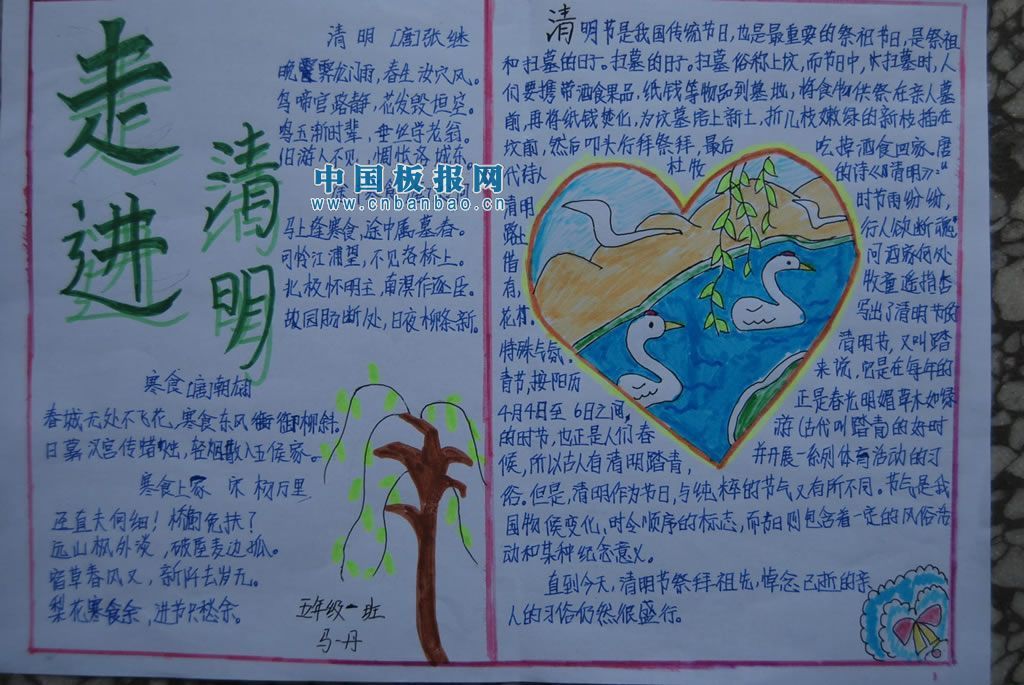 走进
清明
清明 [唐]张继
鸟啼官路静，花发毁垣空。
中国板报网
www.cnbanbao.cn
马上逢寒食，途中属暮春。
可怜江浦望，不见洛桥上。
北极怀明主，南溟作逐臣。
故园肠断处，日夜柳条新。
寒食[唐]
春城无处不飞花，寒食东风御柳斜。
日暮汉宫传蜡烛，轻烟散入五侯家。
寒食上冢 宋 杨万里
远山枫外淡，破屋麦边孤。
梨花寒食余，进节只愁余。
五年级一班
马一丹
清明节是我国传统节日，也是最重要的祭祖节日，是祭祖
和扫墓的日子。扫墓的日子。扫墓俗称上坟，而节日中，扫墓时，人
们要携带酒食果品，纸钱等物品到墓地，将食物供祭在亲人墓
前，再将纸钱焚化，为坟墓培上新土，折几枝嫩绿的新枝插在
坟前，然后叩头行拜祭拜，最后 吃掉酒食回家。唐
代诗人 杜牧 的诗《清明》：
清明 时节雨纷纷，
路上 行人欲断魂。
借 问酒家何处
有， 牧童遥指杏
花村。 写出了清明节的
特殊气氛。 清明节，又叫踏
青节，按阳历 来说，它是在每年的
4月4日至 6日之间， 正是春光明媚草木如绿
的时节，也正是人们春 游（古代叫踏青）的好时
候，所以古人有清明踏青， 并开展一系列体育活动的习
俗。但是，清明作为节日，与纯粹的节气又有所不同。节气是我
国物候变化，时令顺序的标志，而节日则包含着一定的风俗活
动和某种纪念意义。
直到今天，清明节祭拜祖先，悼念已逝的亲
人的习俗仍然很盛行。